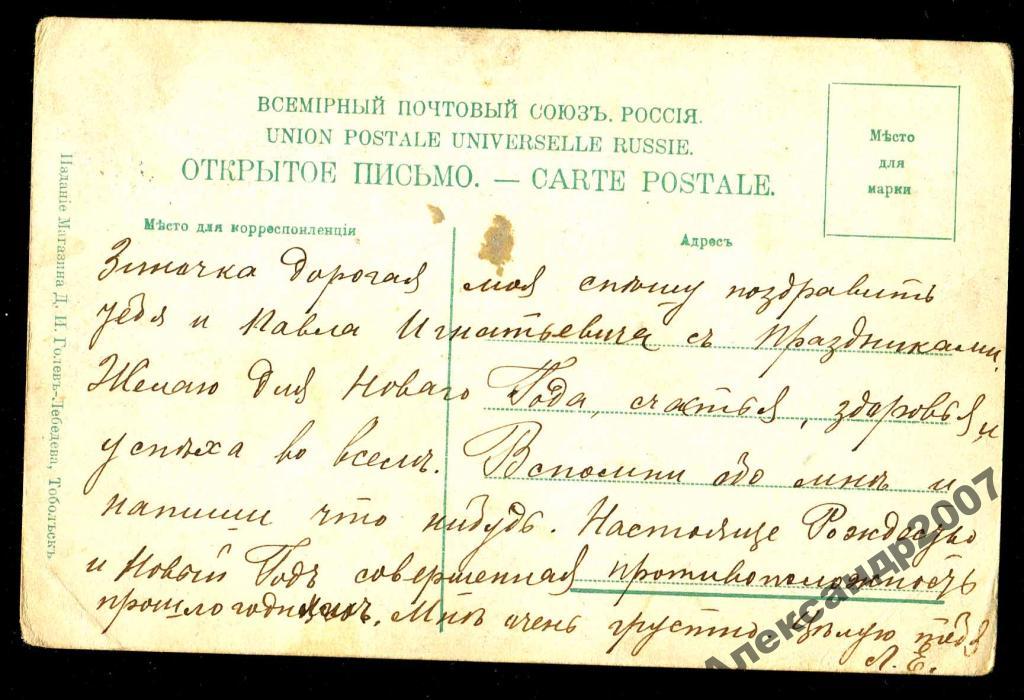 ВСЕМІРНЫЙ ПОЧТОВЫЙ СОЮЗЪ. РОССІЯ.
UNION POSTALE UNIVERSELLE RUSSIE.
ОТКРЫТОЕ ПИСЬМО. — CARTE POSTALE.
Мѣсто
для
марки
Мѣсто для корреспонленціи
Адресъ
Зиночка дорогая моя спѣшу поздравить
тебя и Павла Игнатьевича съ праздниками.
Желаю для Новаго Года, счастья, здоровья и
успѣха во всемъ. Вспомни обо мнѣ и
напиши что нибудь. Настояще Рождество
и Новый Годъ совершенная противоположность
прошлогоднихъ. Мнѣ очень грустно, цѣлую тебя
Л. Е.
Изданіе Магазина Д. И. Голевъ-Лебедева, Тобольскъ
Александр2007